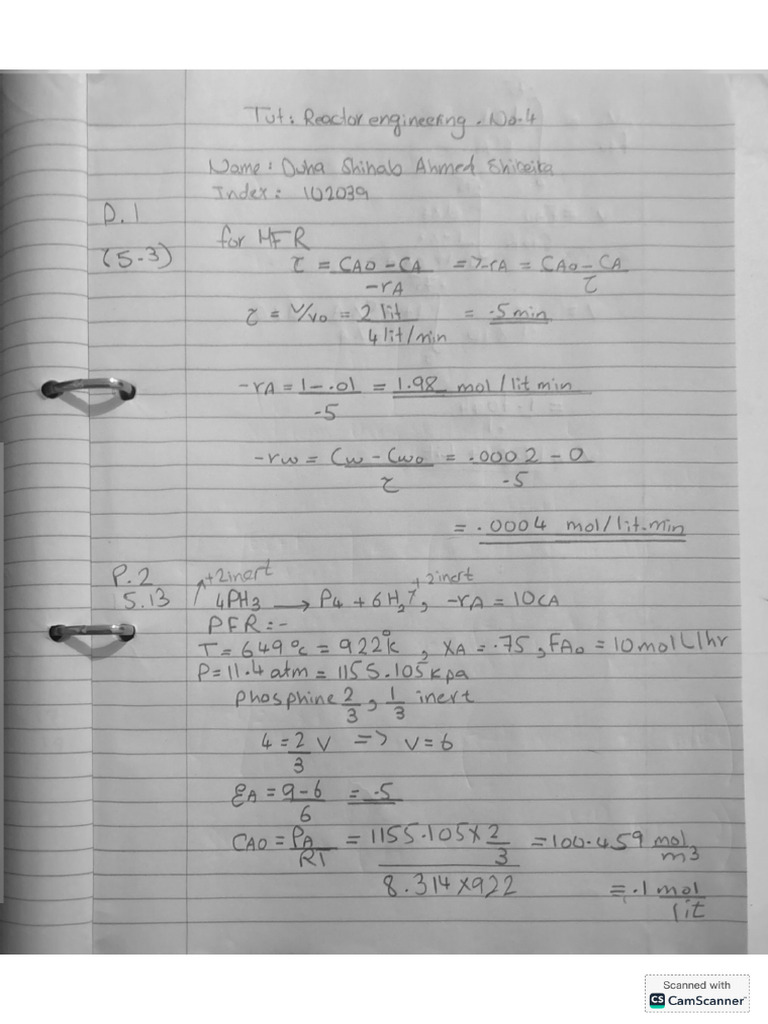 Tut: Reactor engineering. No.4
Name: Duha Shihab Ahmed Shibeika
Index: 102039
P.1
(5-3)
for MFR
τ = CAO - CA / -rA => -rA = CAO - CA / τ
τ = V/vo = 2 lit / 4 lit/min = .5 min
-rA = 1 - .01 / .5 = 1.98 mol/lit min
-rw = Cw - Cwo / τ = .0002 - 0 / .5
= .0004 mol/lit.min
P.2
5.13
+2inert +2inert
4PH3 → P4 + 6H2, -rA = 10CA
PFR:-
T = 649°c = 922°k, XA = .75, FAo = 10mol/hr
P = 11.4 atm = 1155.105 kpa
Phosphine 2/3, 1/3 inert
4 = 2/3 V => V = 6
ƐA = 9-6 / 6 = .5
CAO = PA / RT = 1155.105 × 2/3 / 8.314 × 922 = 100.459 mol/m3
= .1 mol/lit
Scanned with
CS CamScanner